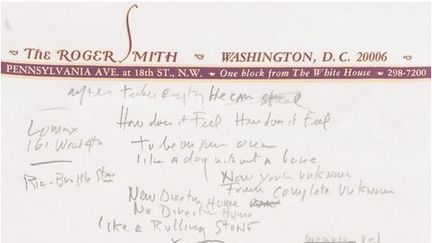 The ROGER SMITH WASHINGTON, D.C. 20006
PENNSYLVANIA AVE. at 18th ST., N.W. One block from The White House 298-7200
after takes everything He can steal
How does it Feel How does it Feel
Lomax
161 West 4th
To be on your own
like a dog without a bone
Now your unknown
Forever complete unknown
New Direction Home
No Direction Home
Like a Rolling Stone